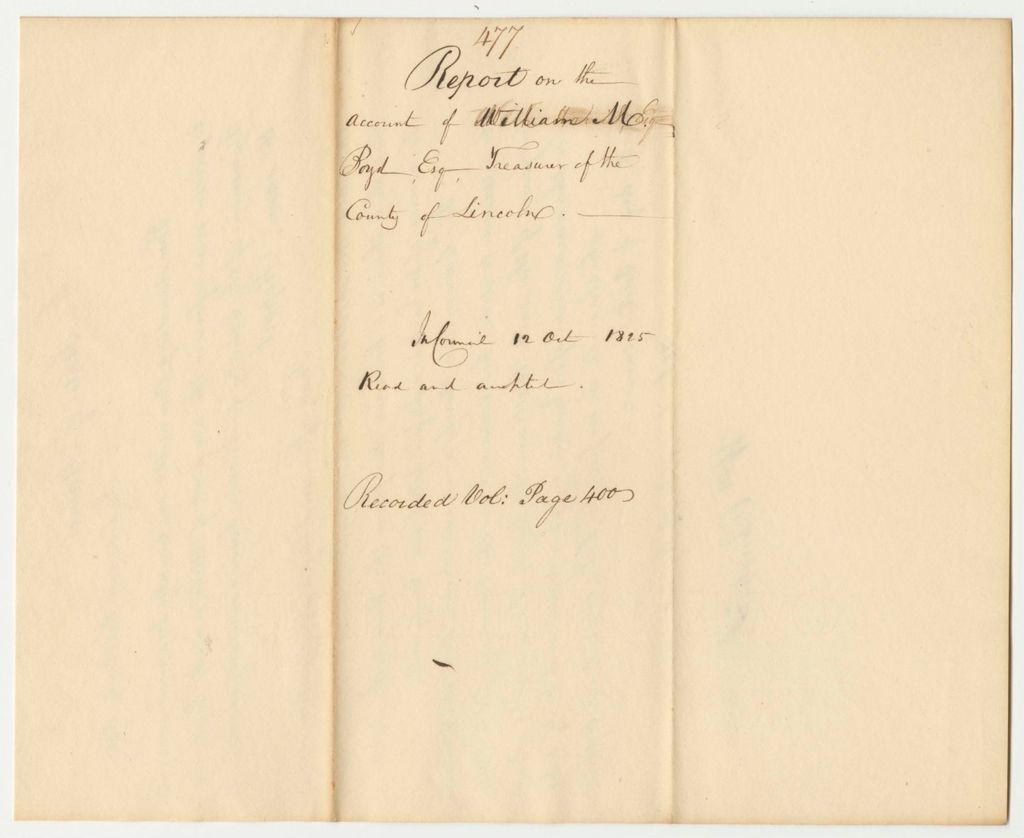 477
Report on the
account of William M
Boyd, Esq, Treasurer of the
County of Lincoln.
In Council 12 Oct 1825
Read and accepted.
Recorded Vol: Page 400